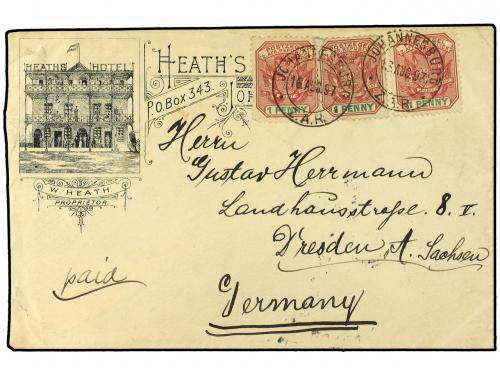 HEATH'S HOTEL
HEATH'S
P.O. Box 343.
W. HEATH
PROPRIETOR
1 PENNY
1 PENNY
1 PENNY
JOHANNESBURG
Z.A.R.
JOHANNESBURG
Z.A.R.
Herrn
Gustav Herrmann
Landhausstraße. 8. II.
Dresden A. Sachsen
Germany
paid